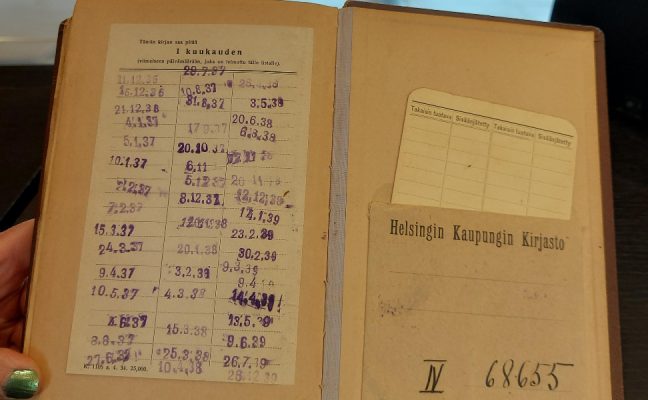 Tämän kirjan saa pitää
1 kuukauden
(viimeisenä päivämääränä, joka on leimattu tälle listalle).
29.7.37
11.12.36 10.8.37
15.12.36 31.8.37 3.5.38
21.12.36 20.6.38
4.1.37 6.8.38
5.1.37 20.10.37
10.1.37 6.11
5.12.37
7.2.37 8.12.37 12.12.38
14.1.39
15.3.37 23.2.39
24.3.37 20.1.38 30.2.39
9.4.37 3.2.38 9.3.39
10.5.37 4.3.38 14.4.39
4.6.37 13.5.39
15.3.38 9.6.39
27.6.37 25.3.38 26.7.39
10.4.38
K. 1105 a. 4. 34. 25,000.
Takaisin laatava Sisäänjätetty Takaisin laatava Sisäänjätetty
Helsingin Kaupungin Kirjasto
IV 68655